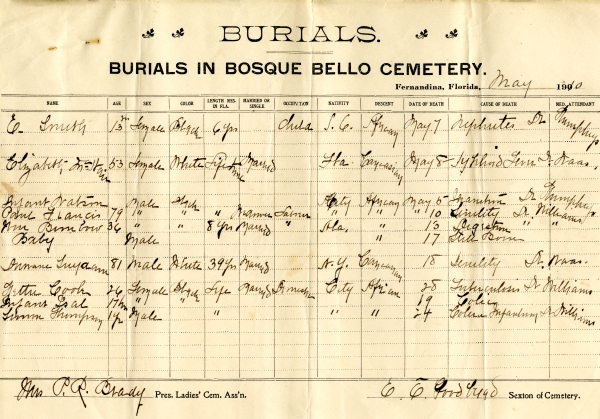 BURIALS.
BURIALS IN BOSQUE BELLO CEMETERY.
Fernandina, Florida, May 1910
NAME AGE SEX COLOR LENGTH RES. IN FLA. MARRIED OR SINGLE OCCUPATION NATIVITY DESCENT DATE OF DEATH CAUSE OF DEATH MED. ATTENDANT
E. Smith 13m Female Black 6 yrs Child S. C. African May 7 Nephrites Dr Humphreys
Elizabeth 53 Female White Lifetime Married Fla Caucasian May 8 Typhoid Fever Dr Waas.
Infant Watson Male Black City African May 5 Inanition Dr Humphreys
Paul Francis 79 " " " Laborer " " " 10 Senility Dr Williams
36 " " 8 yrs Married " Ala. " 13
Baby Male " 17 Still Born
81 Male White 39 yrs Married N. Y. Caucasian 18 Senility Dr. Waas.
Cook 26 Female Black Life Married Domestic City African 28 Tuberculosis Dr Williams
Infant " " " " 19 Colic
Thompson 1 yr Male " " " 24 Colera Infantum Dr Williams
Mrs P. R. Brady Pres. Ladies' Cem. Ass'n. E. E. Sexton of Cemetery.